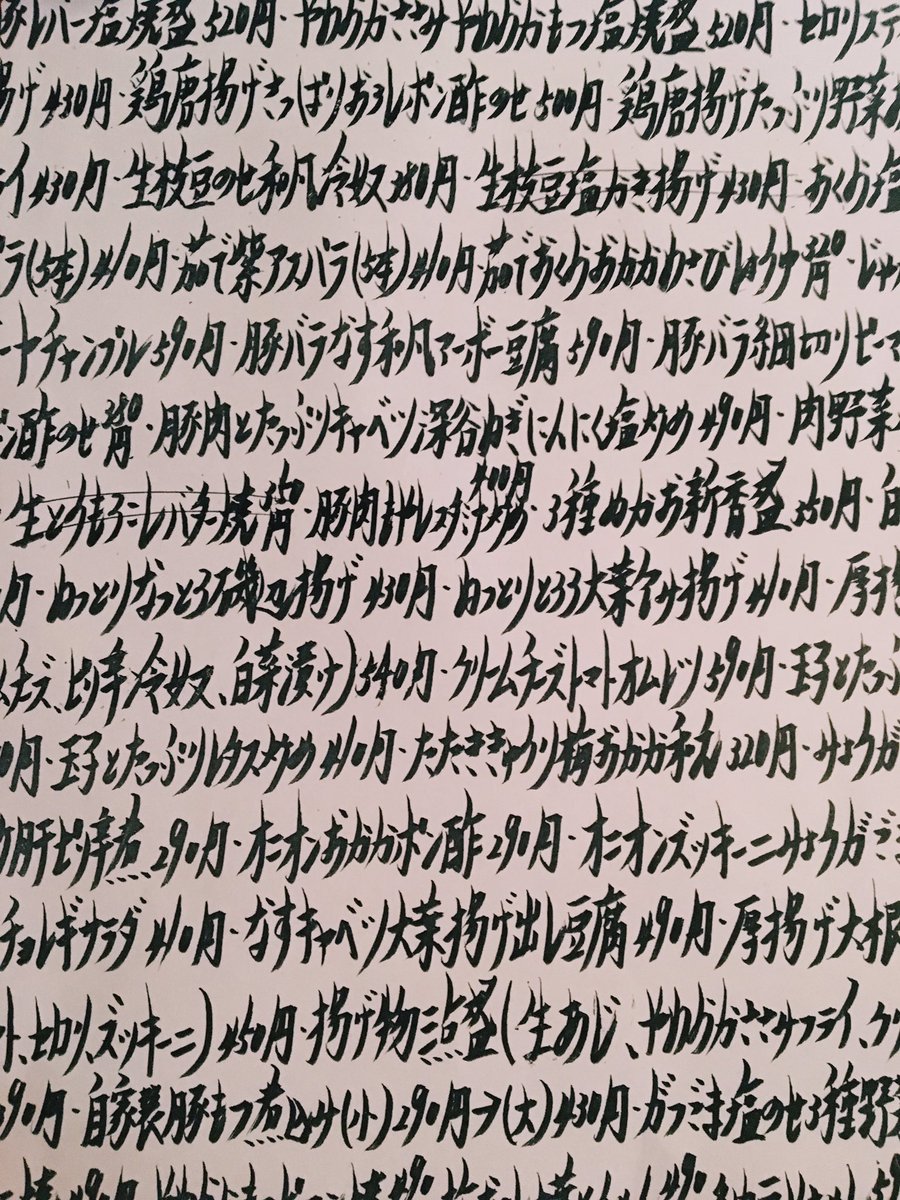 豚レバー塩焼盛520円・やわらかささみやわらかもつ塩焼盛520円・セロリステ
揚げ430円・鶏唐揚げさっぱりおろしポン酢のせ500円・鶏唐揚げたっぷり野菜
イ430円・生枝豆のせ和風冷奴380円・生枝豆塩かき揚げ430円・おくら塩
パラ(5本)410円・茹で紫アスパラ(5本)410円・茹でおくらおかかわさびしょうゆ320円・じゃ
ートチャンプル590円・豚バラなす和風マーボー豆腐590円・豚バラ細切りピーマ
ン酢のせ380円・豚肉とたっぷりキャベツ深谷ねぎにんにく塩炒め490円・肉野菜
・生とうもろこしバター焼 円・豚肉 レタス 炒め400円・3種ぬかお新香盛350円・白
円・ねっとりなっとう磯辺揚げ430円・ねっとりとろろ大葉包み揚げ410円・厚揚
ムチーズ、ピリ辛冷奴、白菜漬け)540円・クリームチーズトマトオムレツ590円・玉子とたっぷ
0円・玉子とたっぷりレタス炒め410円・たたききゅうり梅おかか和え320円・みょうが
肝ピリ辛煮290円・オニオンおかかポン酢290円・オニオンズッキーニみょうがご
チョレギサラダ410円・なすキャベツ大葉揚げ出し豆腐490円・厚揚げ大根
ト、セロリ、ズッキーニ)450円・揚げ物三点盛(生あじ、やわらかささみフライ、ク
90円・自家製豚もつ煮込み(小)290円→(大)430円・ガツごま塩のせ3種野菜